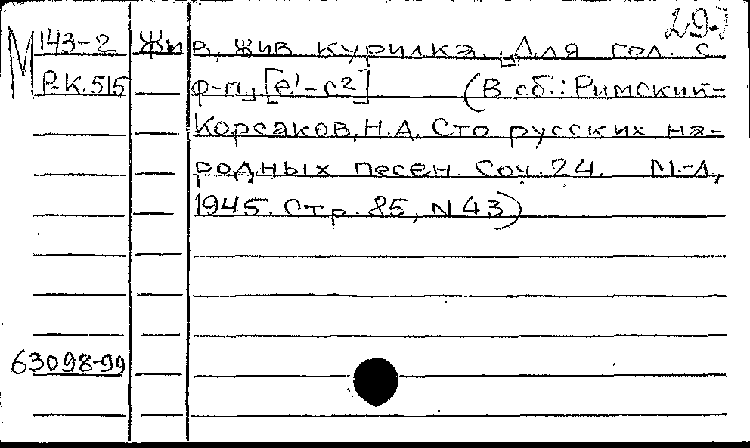 29-7
М 143-2 Жив, жив курилка. Для гол. с
Р-К.515 ф-п., [e¹-c²] (В сб.: Римский-
Корсаков, Н.А. Сто русских на-
родных песен. Соч. 24. М.-Л.,
1945. Стр. 85, N 43)
63098-99